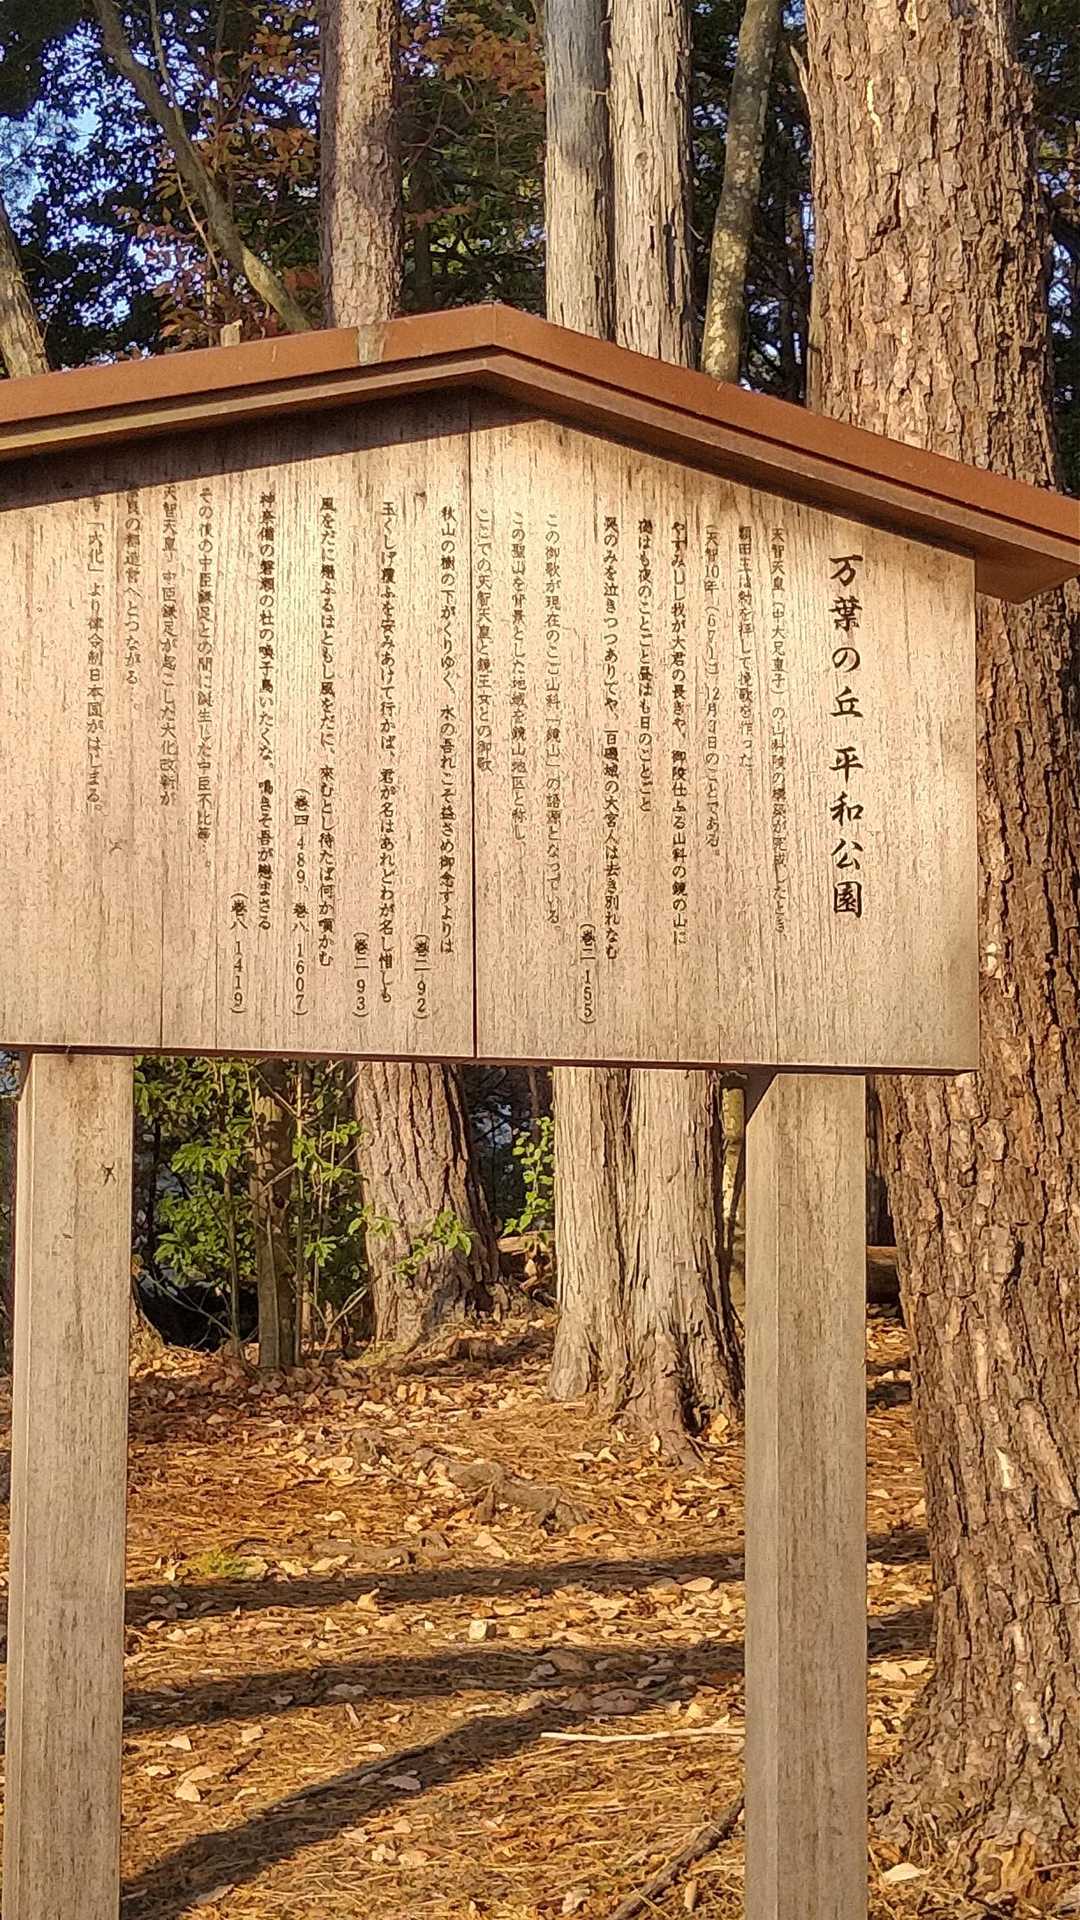 万葉の丘 平和公園
天智天皇（中大兄皇子）の山科陵の構築が完成したとき
額田王は勅を拝して挽歌を作った。
（天智10年（671年）12月 日のことである。
やすみしし我が大君の長きや、御陵仕ふる山科の鏡の山に
夜はも夜のことごと昼はも日のことごと
哭のみを泣きつつありてや、百磯城の大宮人は去き別れなむ
（巻二 155）
この御歌が現在のここ山科「鏡山」の語源となっている。
この聖山を背景とした地域を鏡山地区と称し、
ここでの天智天皇と鏡王女との御歌
秋山の樹の下がくりゆく、水の吾れこそ益さめ御念すよりは
（巻二 92）
玉くしげ覆ふを安みあけて行かば、君が名はあれどわが名し惜しも
（巻二 93）
風をだに戀ふるはともし風をだに、來むとし待たば何か嘆かむ
（巻四 489、巻八 1607）
神奈備の磐瀬の杜の喚子鳥いたくな、鳴きそ吾が戀まさる
（巻八 1419）
その後の中臣鎌足との間に誕生した中臣不比等…。
天智天皇、中臣鎌足が起こした大化改新が
の都造営へとつながる。
「大化」より律令制日本国がはじまる。